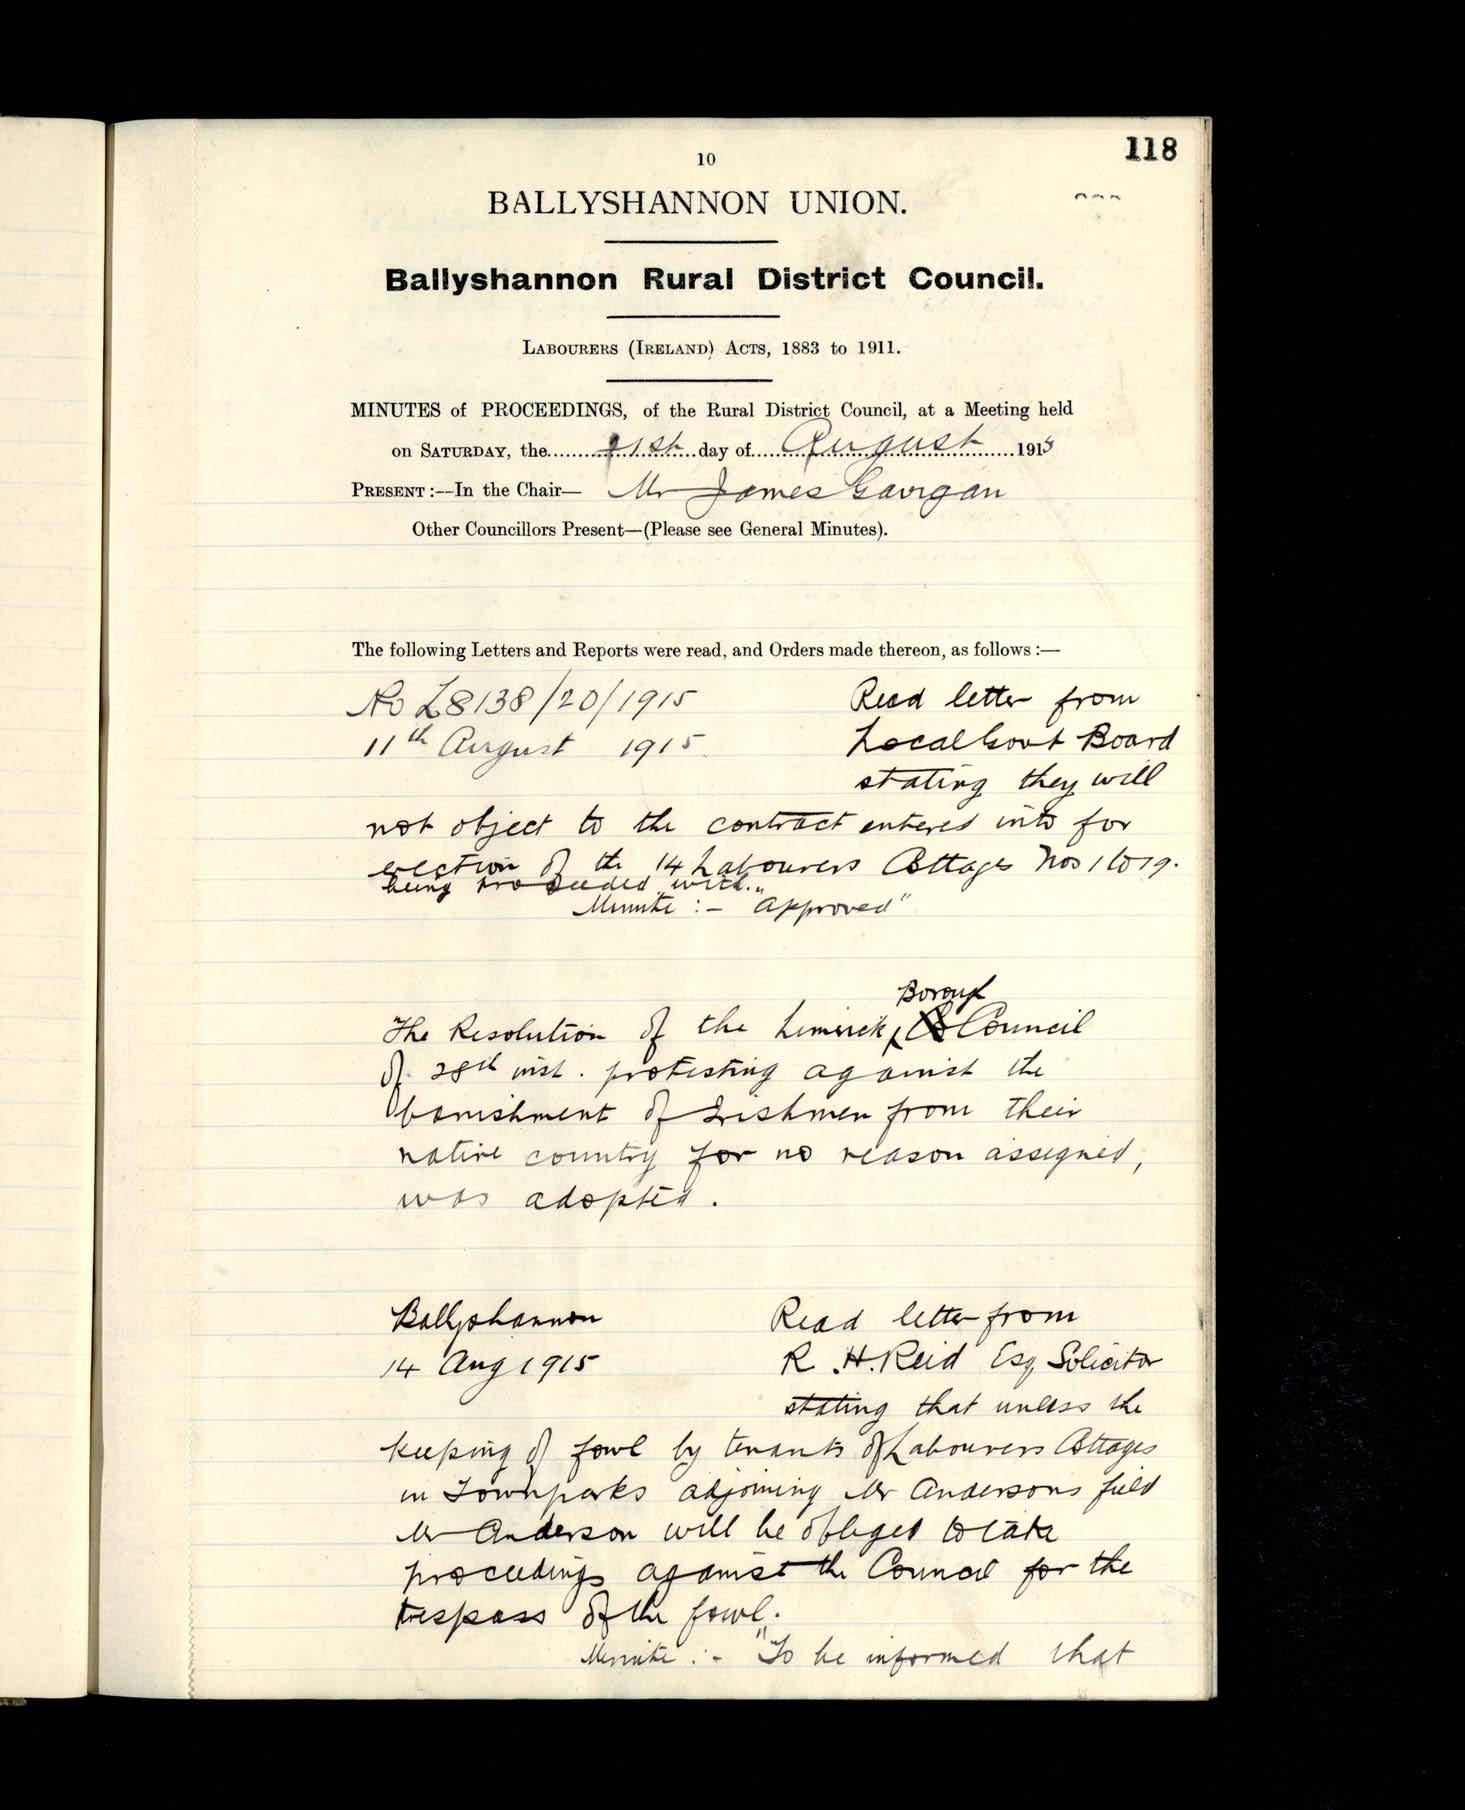 118
10
BALLYSHANNON UNION.
Ballyshannon Rural District Council.
LABOURERS (IRELAND) ACTS, 1883 to 1911.
MINUTES of PROCEEDINGS, of the Rural District Council, at a Meeting held
on SATURDAY, the 21st day of August 1915
PRESENT:—In the Chair— Mr James Gavigan
Other Councillors Present—(Please see General Minutes).
The following Letters and Reports were read, and Orders made thereon, as follows:—
No L8138/20/1915 Read letter from
11th August 1915 Local Govt Board
stating they will
not object to the contract entered into for
erection of the 14 Labourers Cottages Nos 1 to 19.
being proceeded with."
Minute :- "approved"
Borough
The Resolution of the Limerick Co Council
of 28th inst. protesting against the
banishment of Irishmen from their
native country for no reason assigned,
was adopted.
Ballyshannon Read letter from
14 Aug 1915 R. H. Reid Esq Solicitor
stating that unless the
keeping of fowl by tenants of Labourers Cottages
in Townparks adjoining Mr Andersons field
Mr Anderson will be obliged to take
proceedings against the Council for the
trespass of the fowl.
Minute :- "To be informed that